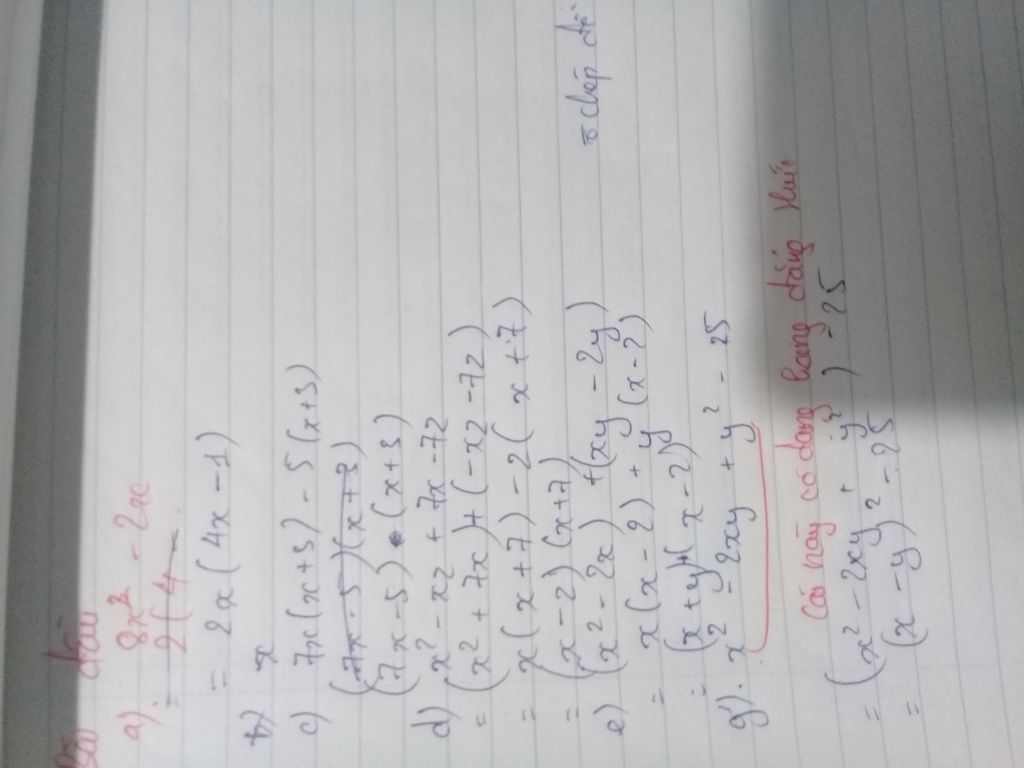 a). 8x² - 2x
= 2(4
= 2x(4x - 1)
b) x
c) 7x(x+3) - 5(x+3)
(7x - 5)(x+3)
(7x - 5) (x+3)
d) x² - xz + 7x - 7z
= (x² + 7x) + (-xz - 7z)
= x(x+7) - z(x+7)
= (x-z)(x+7)
e) (x² - 2x) + (xy - 2y)
= x(x-2) + y(x-2)
= (x+y)(x-2)
g). x² - 2xy + y² - 25
Cái này có dạng hằng đẳng thức
= (x² - 2xy + y²) - 25
= (x-y)² - 25